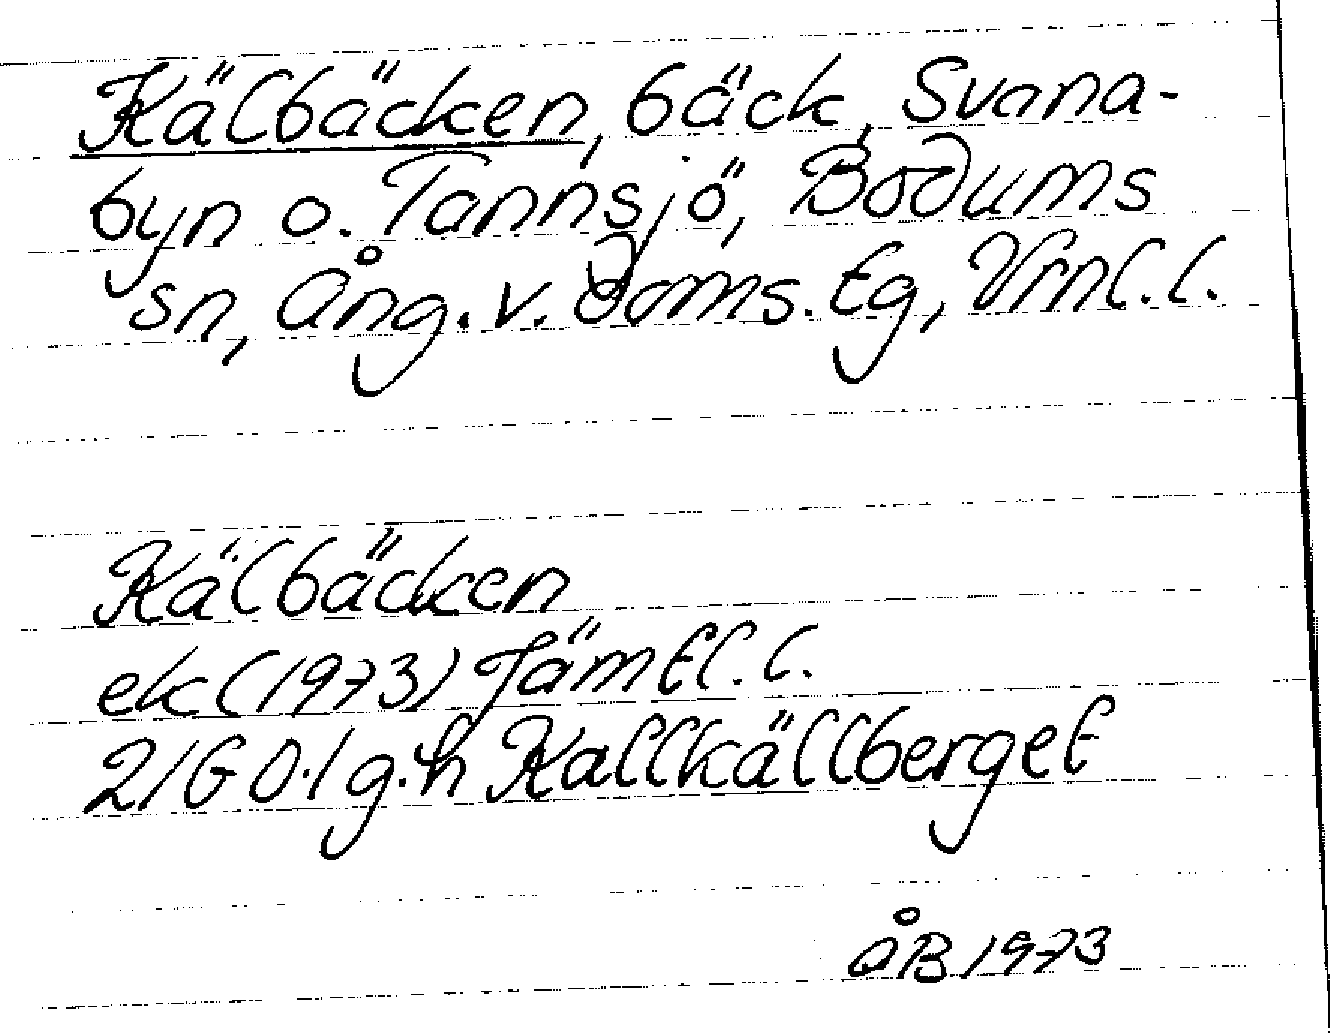 Kälbäcken, bäck, Svana-
byn o. Tannsjö, Bodums
sn, Ång. v. doms. tg, Vrnl. l.
Kälbäcken
ek (1973) Jämtl. l.
21G 0-1 g.h Kallkällberget
ÅB 1973